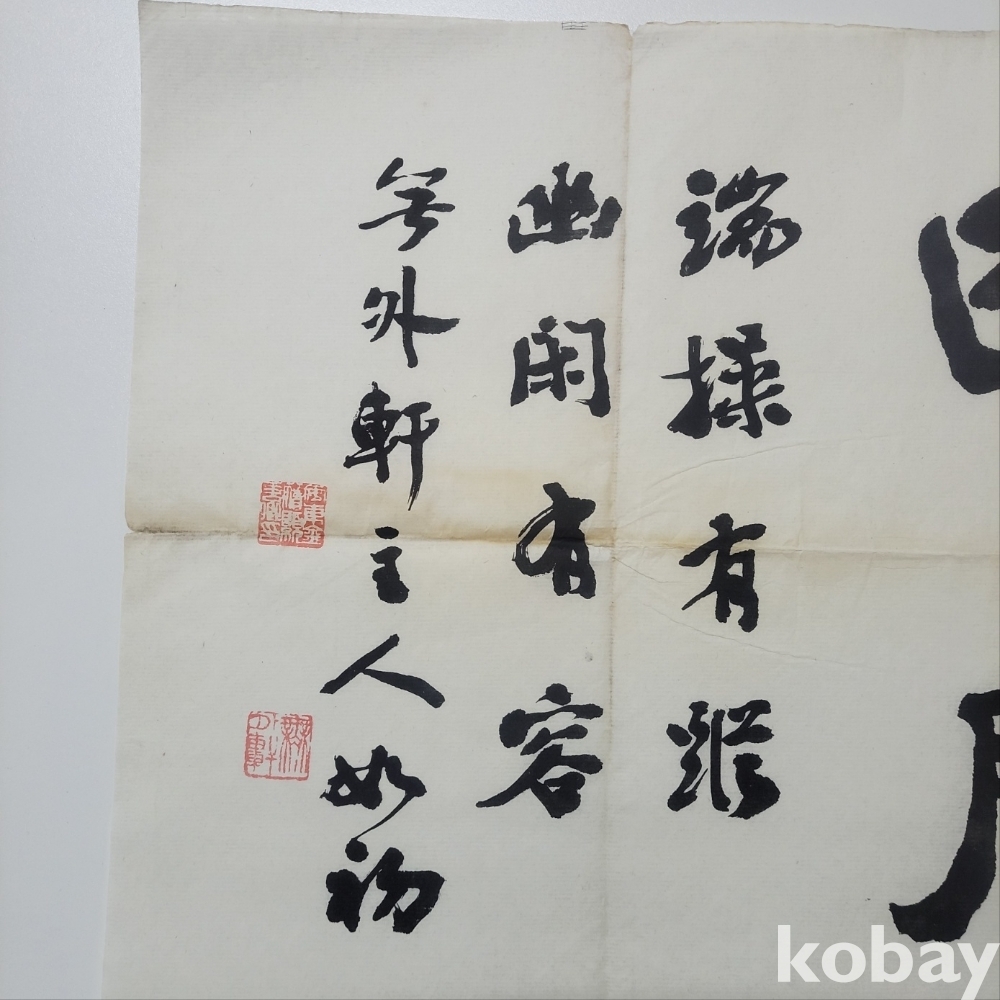 端操有蹤
幽閑有容
無外軒主人如初
kobay